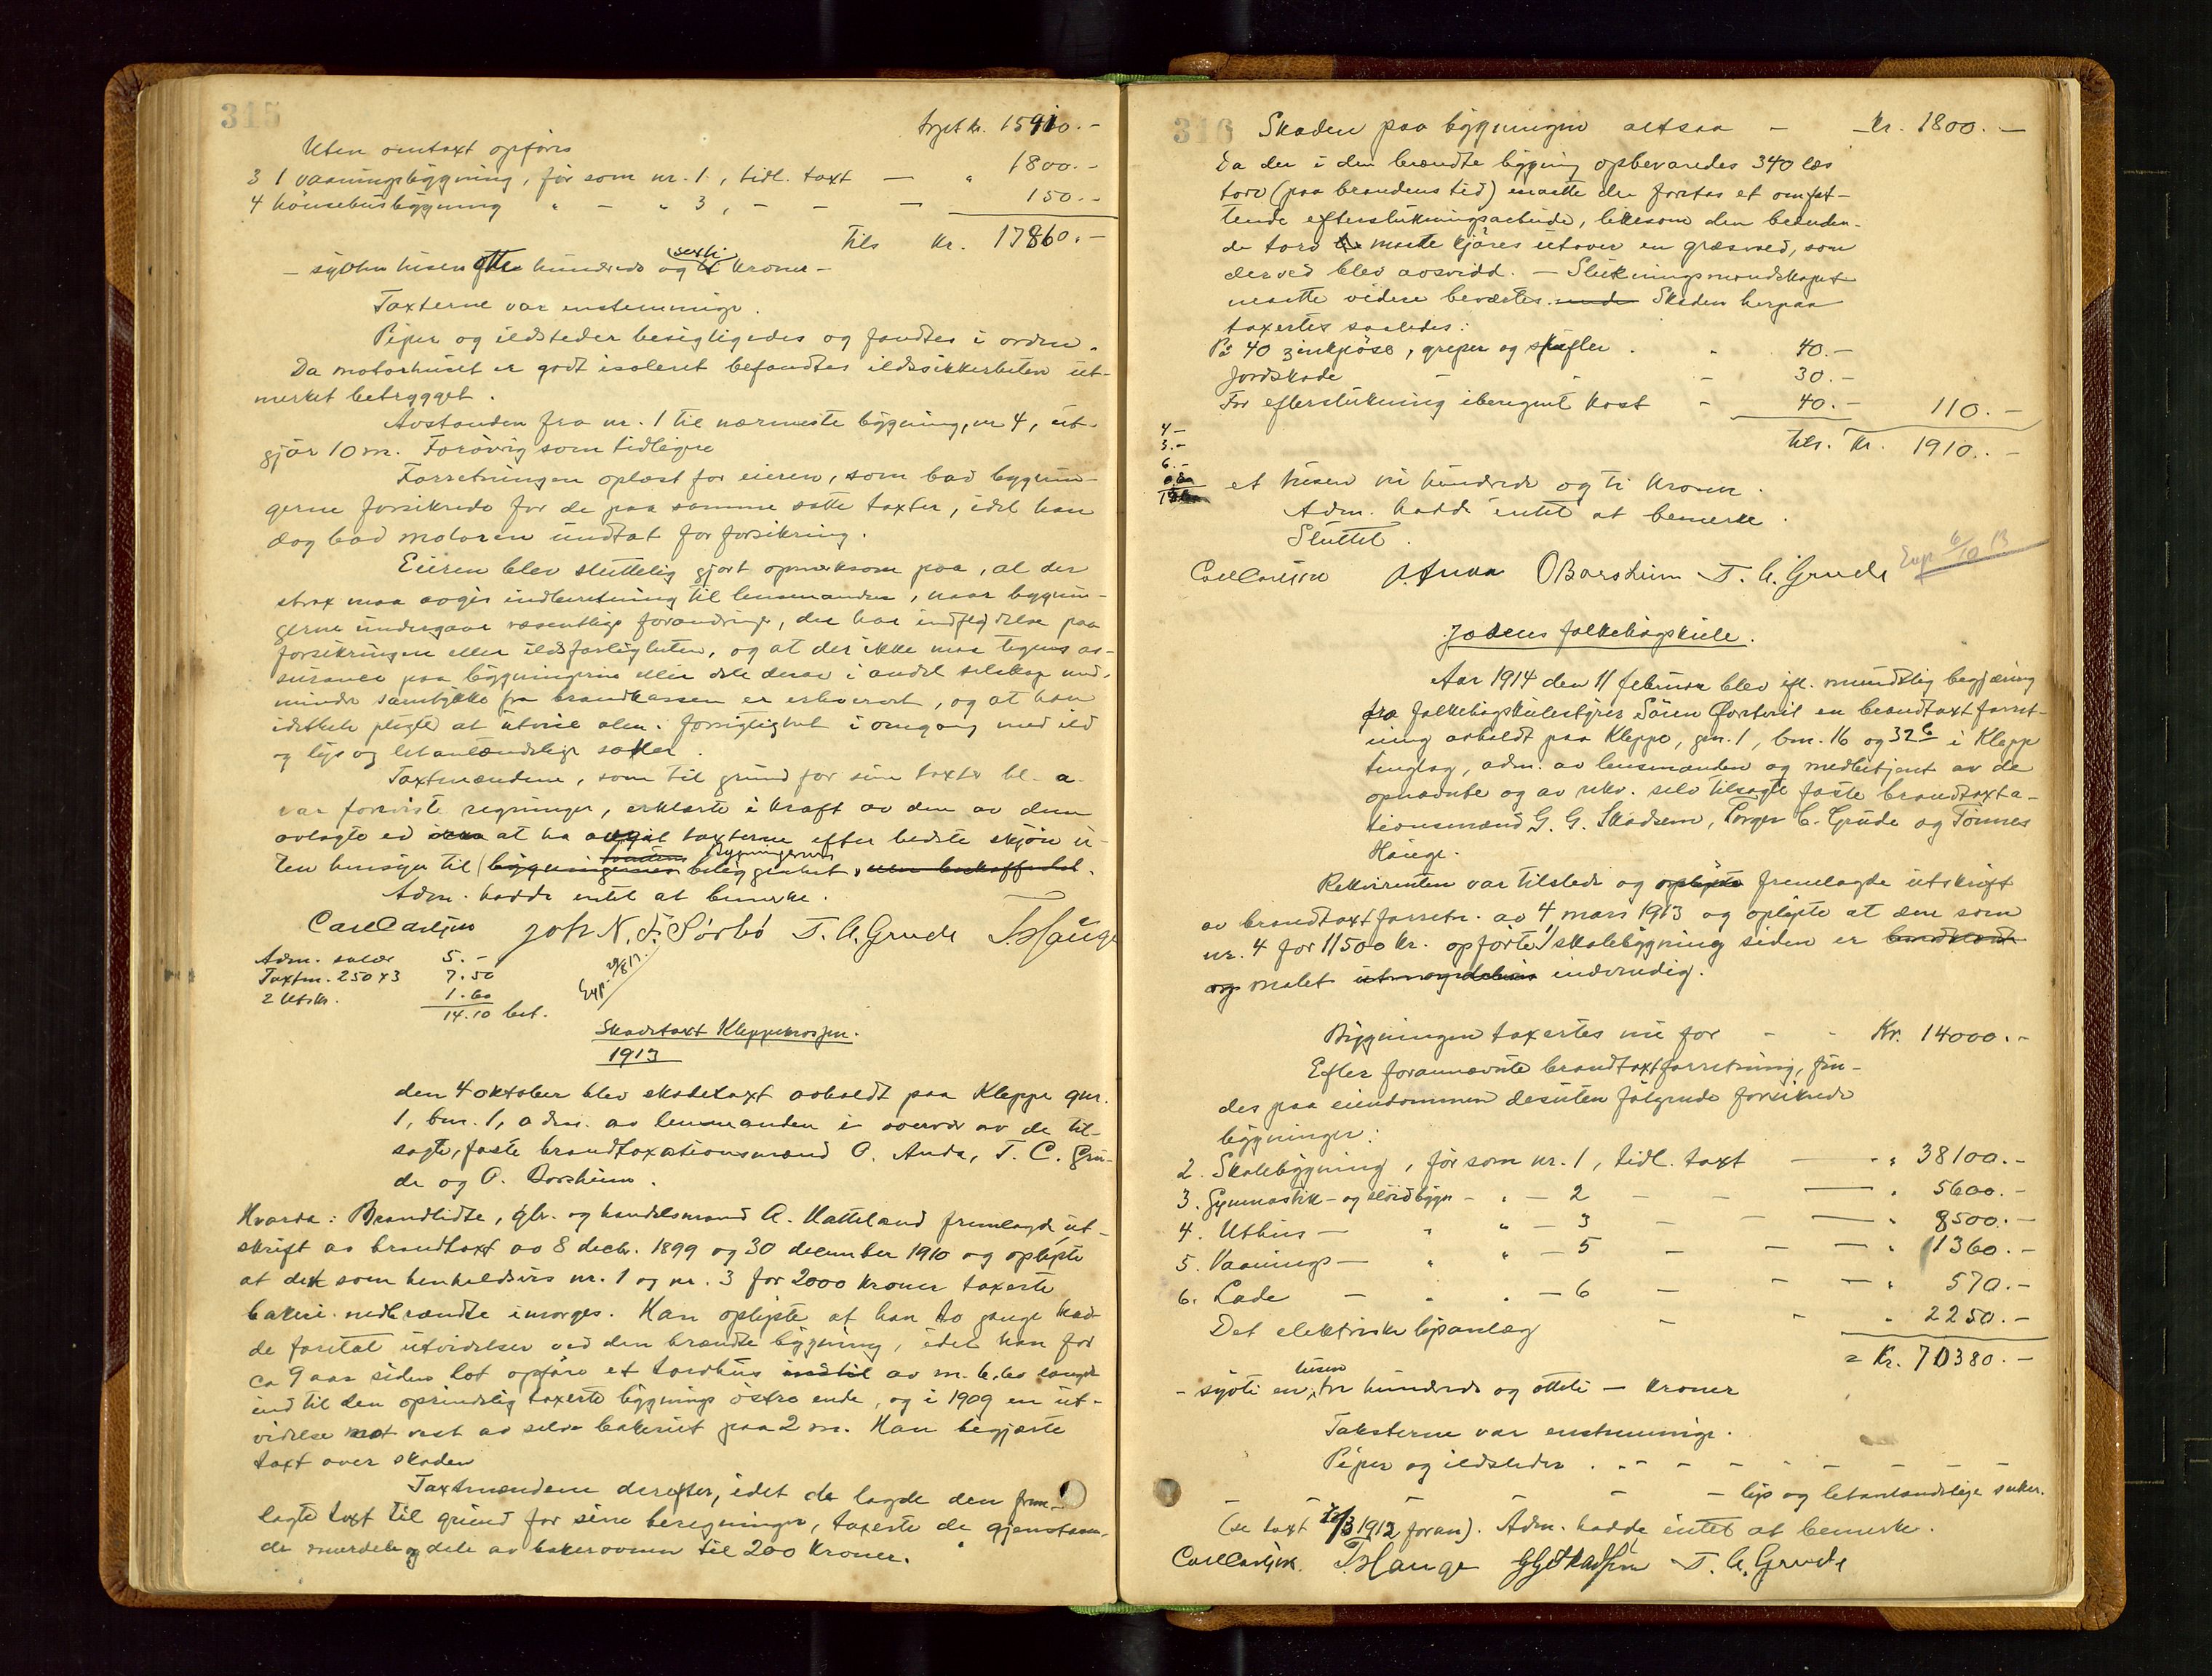 315
trpt kr. 15910.-
Uten omtaxt opføres
3 1 vaaningsbygning, før som nr. 1, tidl. taxt — " 1800.-
4 hönsehusbygning " - " 3, - - — 150.-
Tils kr. 17860.-
- sytten tusen otte hundrede og sexti kroner -
Taxterne var enstemmige.
Piper og ildsteder besigtigedes og fandtes i orden.
Da motorhuset er godt isoleret befandtes ildssikkerheten ut-
merket betrygget.
Avstanden fra nr. 1 til nærmeste bygning, nr 4, ut-
gjör 10 m. Forövrig som tidligere
Forretningen oplæst for eieren, som bad bygnin-
gerne forsikrede for de paa samme satte taxter, idet han
dog bad motoren undtat for forsikring.
Eieren blev sluttelig gjort opmerksom paa, at der
strax maa avgis indberetning til lensmanden, naar bygnin-
gerne undergaar væsentlige forandringer, der har indflydelse paa
forsikringen eller ildsfarligheten, og at der ikke maa tegnes as-
surance paa bygningerne eller dele derav i andet selskap med-
mindre samtykke fra brandkassen er erhvervet, og at han
idethele pligter at utvise alm. forsigtighet i omgang med ild
og lys og letantændelige saker.
Taxtmændene, som til grund for sine taxter bl. a.
var forviste regninger, erklærte i kraft av den av dem
avlagte ed at ha avgit taxterne efter bedste skjön u-
ten hensyn til bygningernes beliggenhet.
Adm. hadde intet at bemerke.
Carl Carlsen Joh N. F. Sørbö T. C. Grude T. Hauge
Adm. salær 5.-
Taxtm. 250 x 3 7.50
2 Utskr. 1.60
14.10 bet.
Exp. 29/8 13.
Skadetaxt Kleppekrossen.
1913
den 4 oktober blev skadetaxt avholdt paa Kleppe gnr.
1, bnr. 1, adm. av lensmanden i overvær av de til-
sagte, faste brandtaxationsmænd O. Anda, T. C. Gru-
de og O. Borsheim.
Hvorda: Brandlidte, gbr. og handelsmand A. Hatteland fremlagde ut-
skrift av brandtaxt av 8 decbr. 1899 og 30 december 1910 og oplyste
at det som henholdsvis nr. 1 og nr. 3 for 2000 kroner taxerte
bakeri nedbrændte imorges. Han oplyste at han to gange had-
de foretat utvidelser ved den brændte bygning, idet han for
ca 9 aar siden lot opføre et torvhus indtil av m. 6,60 længde
ind til den oprindelig taxerte bygnings östre ende, og i 1909 en ut-
videlse mot vest av selve bakeriet paa 2 m. Han begjærte
taxt over skaden
Taxtmændene derefter, idet de lagde den frem-
lagte taxt til grund for sine beregninger, taxerte de gjenstaaen-
de murdele og dele av bakerovnen til 200 kroner.
316
Skaden paa bygningen altsaa - Kr. 1800.-
Da der i den brændte bygning opbevaredes 340 læs
torv (paa brandens tid) maatte der foretas et omfat-
tende efterslukningsarbeide, likesom den brænden-
de torv maatte kjöres utover en græsved, som
derved blev avsvidd. - Slukningsmandskapet
maatte videre bevertes. Skaden herpaa
taxertes saaledes:
På 40 zinkpöse, greper og skufler . " 40.-
Jordskade - - - 30.-
For efterslukning iberegnet kost - 40.- 110.-
Tils. Kr. 1910.-
4 -
3.-
6.-
et tusen ni hundrede og ti kroner.
Adm. hadde intet at bemerke.
Sluttet.
Carl Carlsen O. Anda O Borsheim T. C. Grude
Exp 6/10 13
Jædrens folkehögskule.
Aar 1914 den 11 februar blev ifl. mundtlig begjæring
fra folkehögskulestyrer Sören Örstavit en brandtaxtforret-
ning avholdt paa Kleppe, gnr. 1, bnr. 16 og 32 b i Klepp
tinglag, adm. av lensmanden og medbetjent av de
opnævnte og av rekv. selv tilsagte faste brandtaxta-
tionsmænd G. G. Skadsem, Torger C. Grude og Tönnes
Hauge.
Rekvirenten var tilstede og fremlagde utskrift
av brandtaxtforretn. av 4 mars 1913 og oplyste at den som
nr. 4 for 11500 kr. opførte skolebygning siden er
malet indvendig.
Bygningen taxertes nu for - - Kr. 14000.-
Efter forannævnte brandtaxtforretning, fin-
des paa eiendommen desuten fölgende forsikrede
bygninger:
2. Skolebygning, før som nr. 1, tidl. taxt — - " 38100.-
3. Gymnastik- og slöidbygn - " - 2 - - — " 5600.-
4. Uthus - " " - 3 - - — " 8500.-
5. Vaanings- " " - 5 - - - " 1360.-
6. Lade - " " - 6 - - - " 570.-
Det elektriske lysanlæg - - " 2250.-
= Kr. 70380.-
- sytti en tusen tre hundrede og otteti - kroner
Taksterne var enstemmige.
Piper og ildsteder . . - - - - - - -
- - lys og letantændelige saker.
(se taxt 4/3 1913 foran). Adm. hadde intet at bemerke.
Carl Carlsen. T. Hauge G G Skadsem T. C. Grude